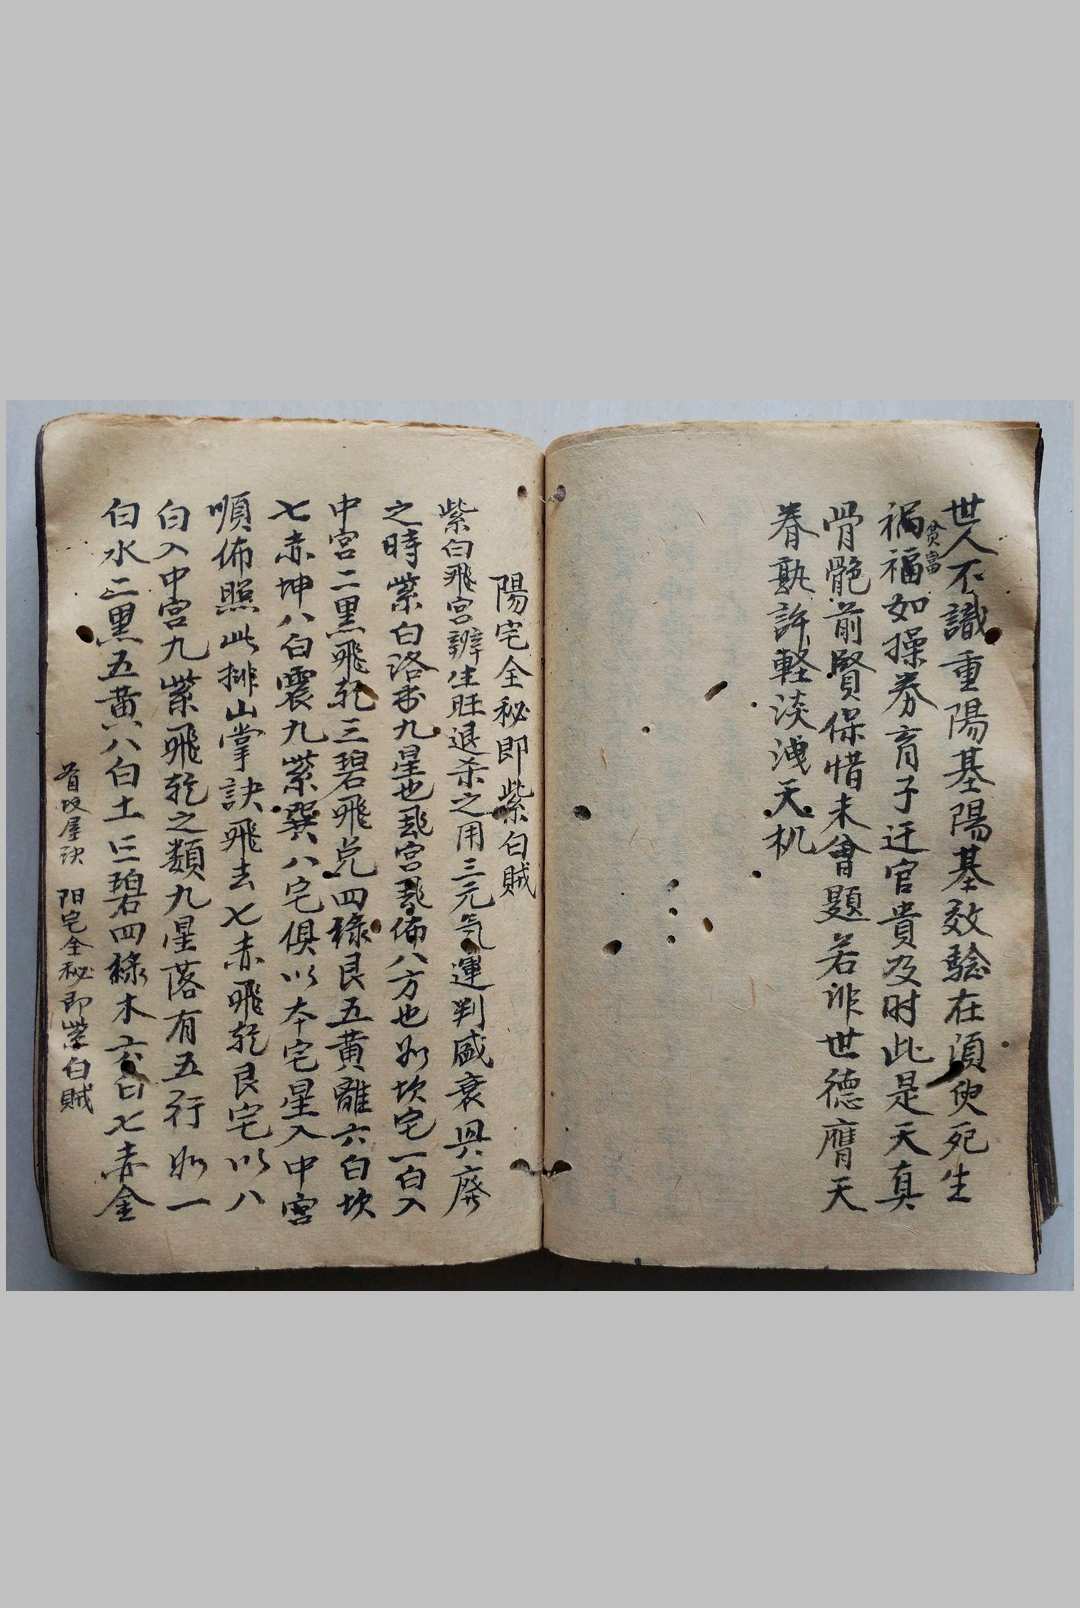 世人不識重陽基陽基效驗在須臾死生
貧富
禍福如操券育子迁官貴及时此是天真
骨髄前賢保惜未曾題若非世德膺天
眷孰許軽淡洩天机
陽宅全秘即紫白賊
紫白飛宮辨生旺退杀之用三元氣運判盛衰興廢
之時紫白洛書九星也飛宮飛佈八方也如坎宅一白入
中宮二黑飛乾三碧飛兌四綠艮五黃離六白坎
七赤坤八白震九紫巽八宅俱以本宅星入中宮
順佈照此排山掌訣飛去七赤飛乾艮宅以八
白入中宮九紫飛乾之類九星落有五行如一
白水二黑五黃八白土三碧四綠木六白七赤金
首叚屋訣 阳宅全秘即紫白賊